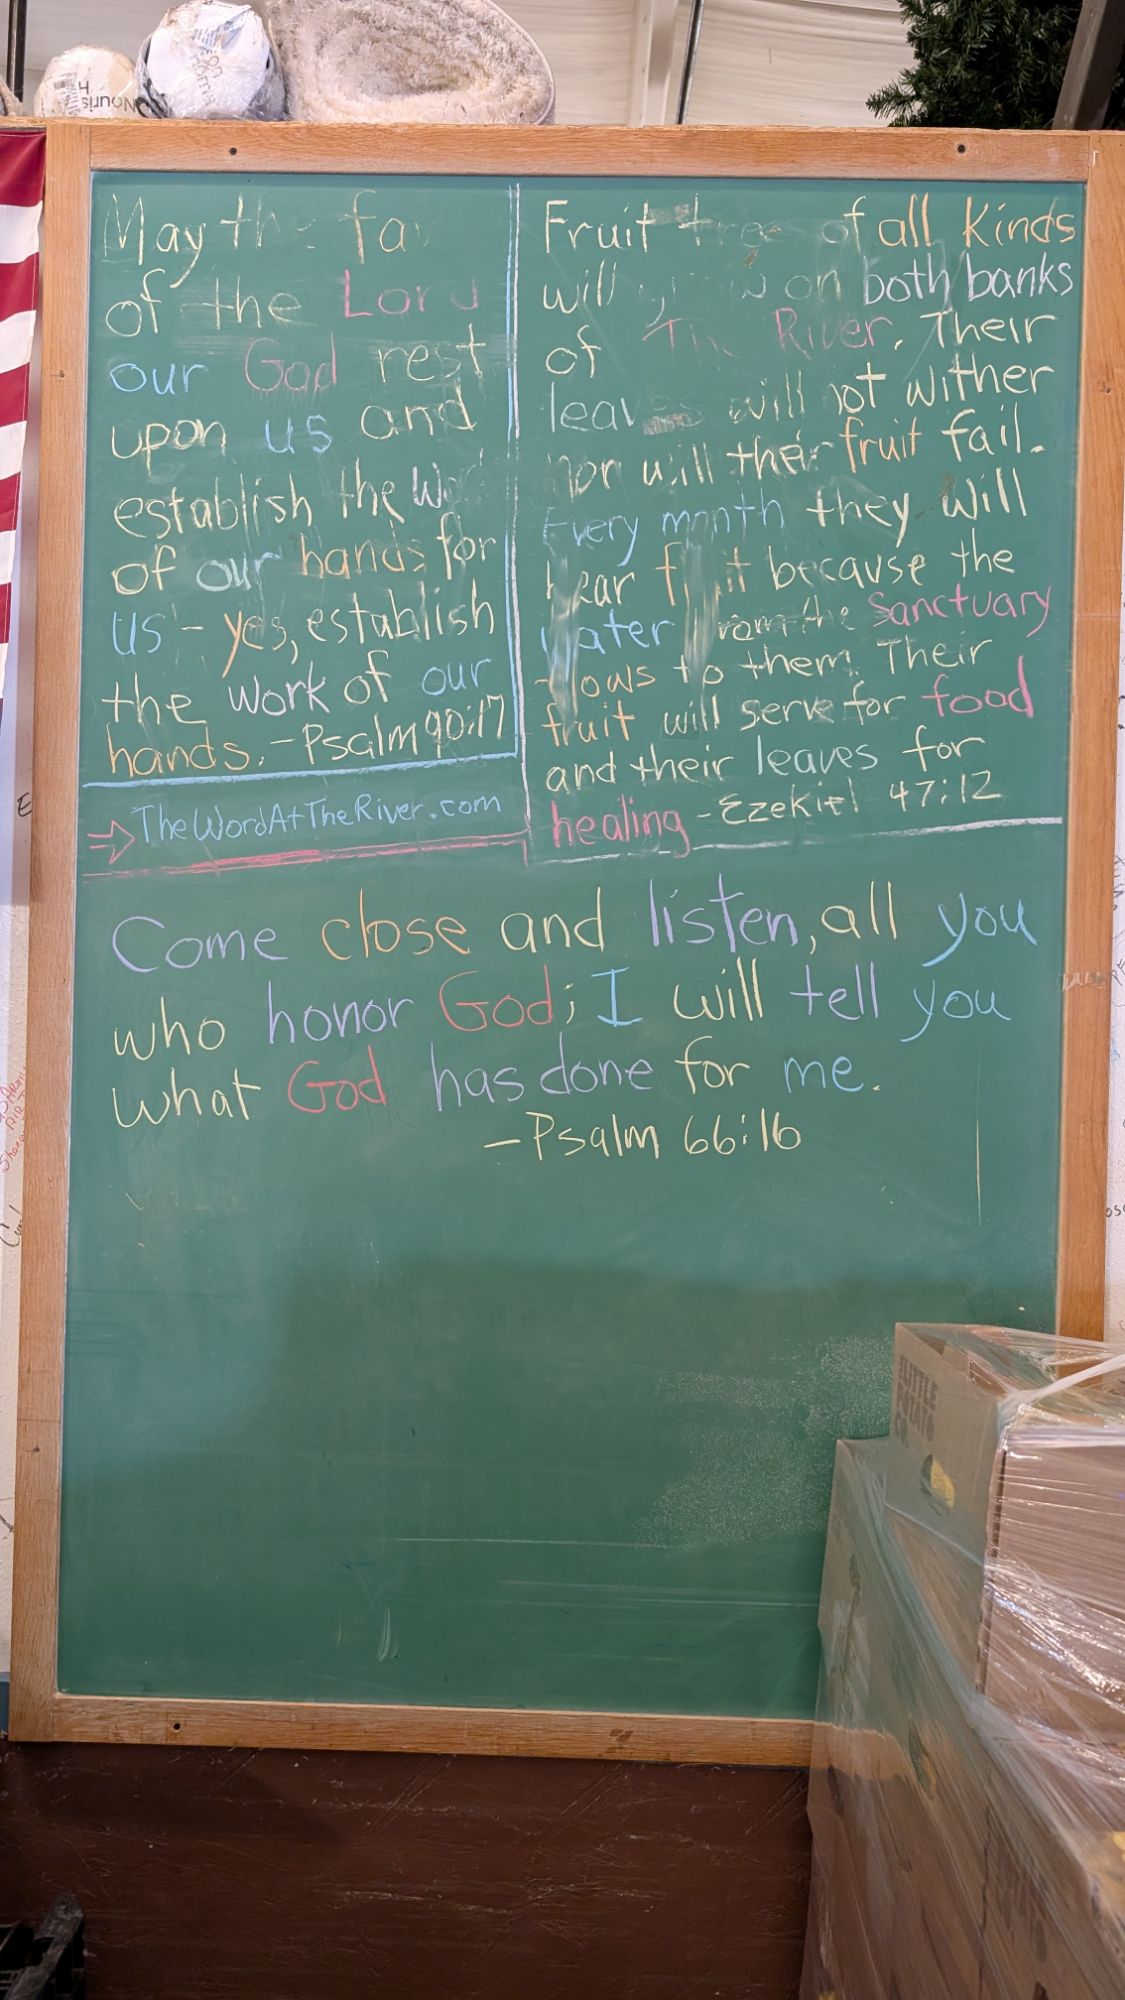 May the fa
of the Lord
our God rest
upon us and
establish the
of our hands for
us - yes, establish
the work of our
hands. - Psalm 90:17
TheWordAtTheRiver.com
Fruit tree of all Kinds
will on both banks
of The River. Their
leaves will not wither
nor will their fruit fail.
Every month they will
bear fruit because the
water from the Sanctuary
flows to them. Their
fruit will serve for food
and their leaves for
healing - Ezekiel 47:12
Come close and listen, all you
who honor God; I will tell you
what God has done for me.
- Psalm 66:16
THE LITTLE
POTATO
CO